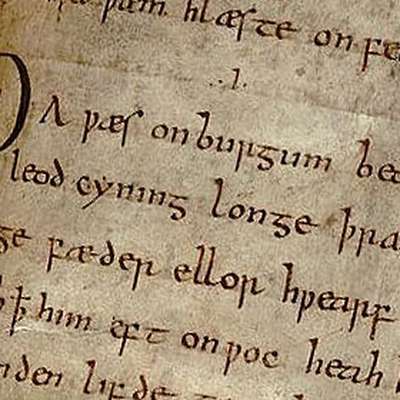 þæm hlæste on fe
.I.
ÐA ƿæs onburgum beo
leod cyning longe þra
ge fæder ellor hƿearf
ꝥ him eft onƿoc heah
nden lifde